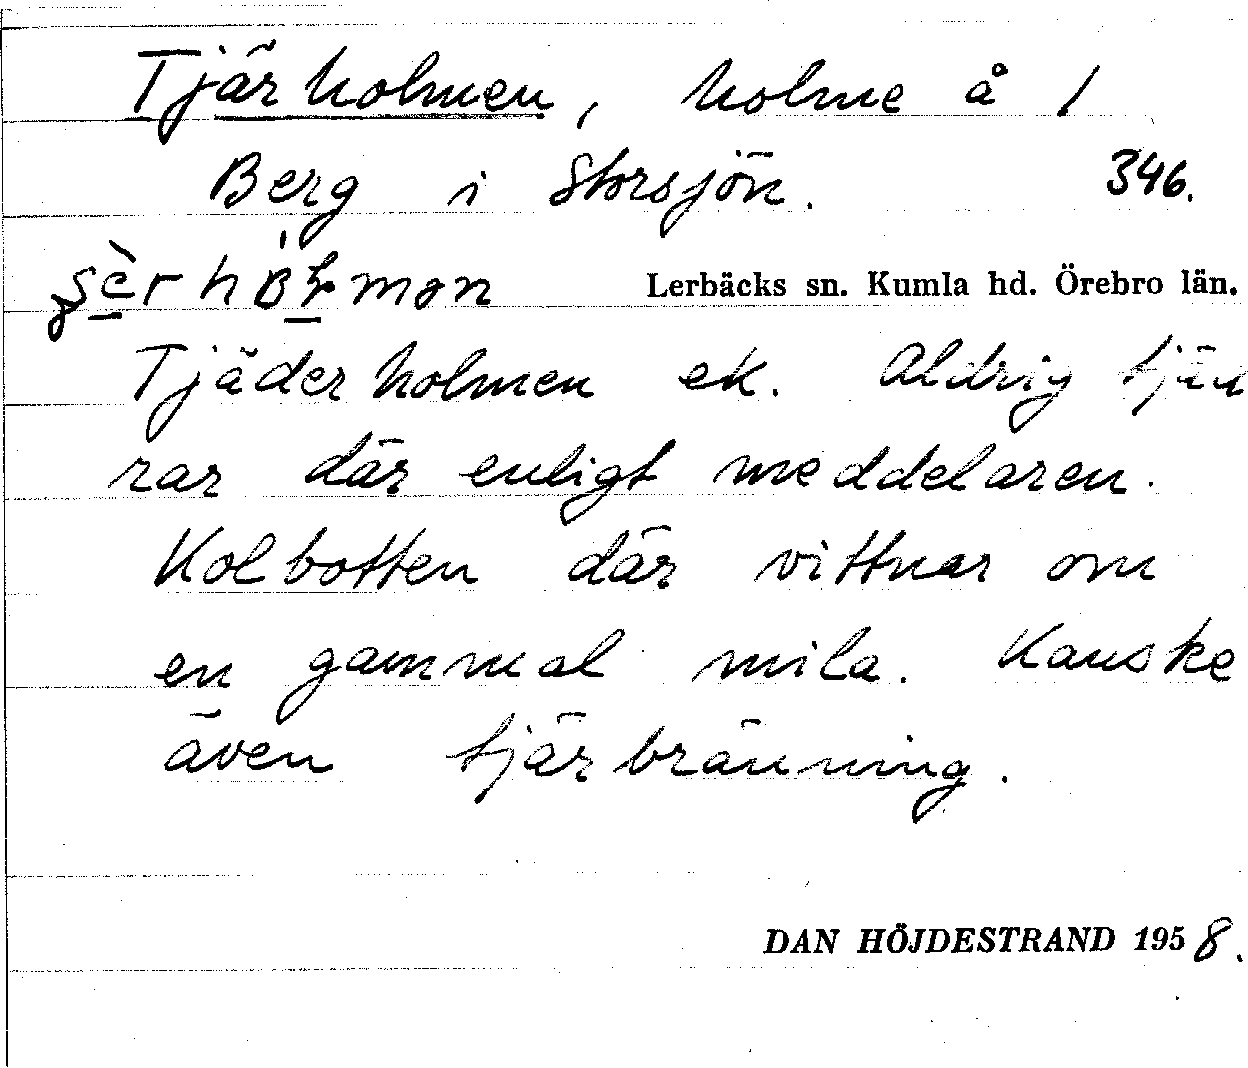 Tjärholmen, holme å 1
Berg i Storsjön. 346.
Lerbäcks sn. Kumla hd. Örebro län.
Tjäderholmen ek. Aldrig tjäd
rar där enligt meddelaren.
Kolbotten där vittnar om
en gammal mila. Kanske
även tjärbränning.
DAN HÖJDESTRAND 1958.